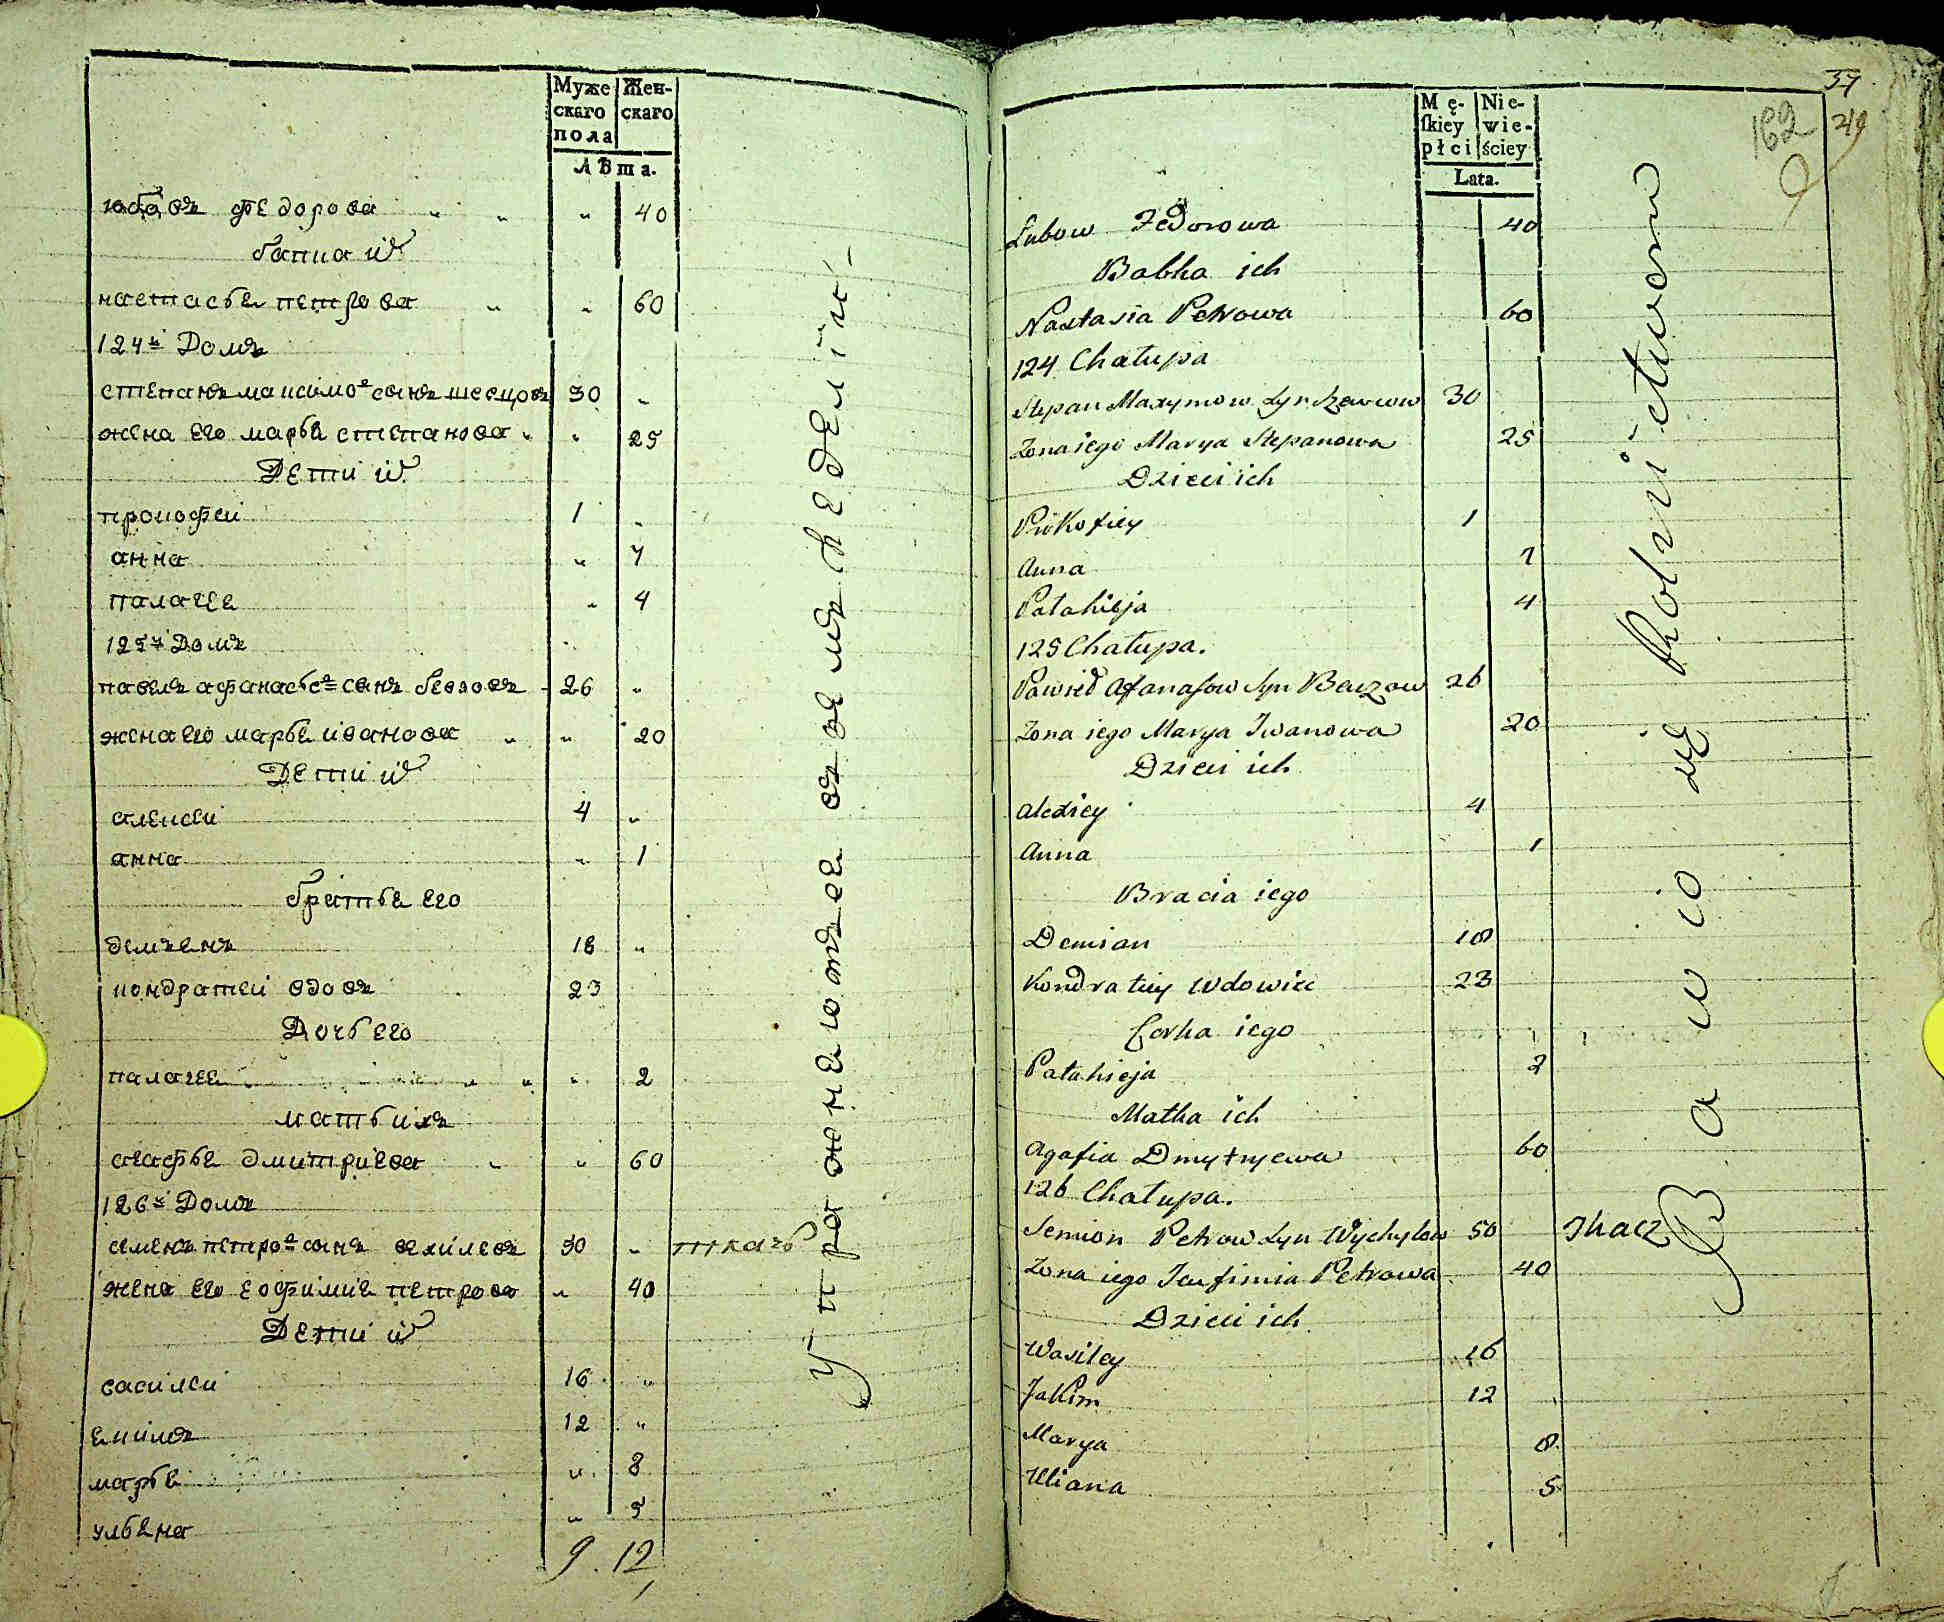 Муже
скаго
пола
Жен-
скаго
Лѣта.
федорова " " " 40
бапка их
настасья петрова " " 60
124й Домъ
степанъ максимов сынъ шевцовъ 30 "
жена его марья степанова " " 25
Дети их
прокофеи 1 "
анна " 7
палагея " 4
125й Домъ
павелъ афанасьев сынъ 26 "
жена его марья иванова " " 20
Дети их
алексеи 4 "
анна " 1
братья его
демьянъ 18 "
кондратеи вдовъ 23
Дочь его
палагея " " " 2
мать ихъ
агафья дмитриева " " 60
126й Домъ
семенъ петров сынъ вихилевъ 50 " ткачь
жена его еофимия петрова " 40
Дети их
василеи 16 "
екимъ 12 "
марья " 8
ульяна " 5
9. 12
упражняются въ земледелiи
57
162
219
Mę-
ſkiey
płci
Nie-
wie-
ściey
Lata.
Lubow Fedorowa 40
Babka ich
Nastasia Petrowa 60
124 Chałupa
Stepan Maxymow Syn Szewcow 30
Zona iego Marya Stepanowa 25
Dzieci ich
Prokofiey 1
Anna 7
Pałahieja 4
125 Chałupa.
Pawieł Afanasow Syn 26
Zona iego Marya Iwanowa 20
Dzieci ich
Alexiey 4
Anna 1
Bracia iego
Demian 18
Kondratiy Wdowiec 23
Corka iego
Pałahieja 2
Matka ich
Agafia Dmytryewa 60
126 Chałupa.
Semion Petrow Syn Wychylow 50 Tkacz
Zona iego Jeufimia Petrowa 40
Dzieci ich
Wasiley 16
Jakim 12
Marya 8
Uliana 5
Bawio się Rolnictwem